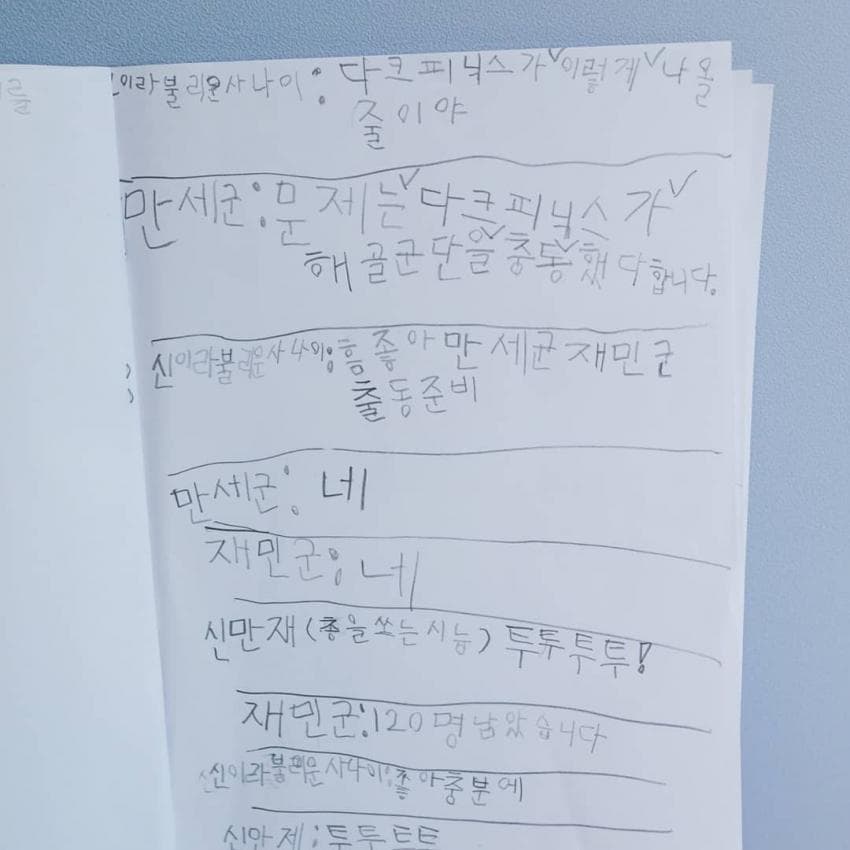 이라불리운사나이: 다크피닉스가∨이렇게∨나올
줄이야
만세군: 문제는∨다크피닉스가∨
해골군단을∨충동∨했다합니다.
신이라불리운사나이: 흠 좋아 만세군 재민군
출동준비
만세군: 네
재민군: 네
신만재(총을쏘는시늉) 투투투투!
재민군: 120명 남았습니다
신이라불리운사나이: 좋아충분해
신만제: 투투트트